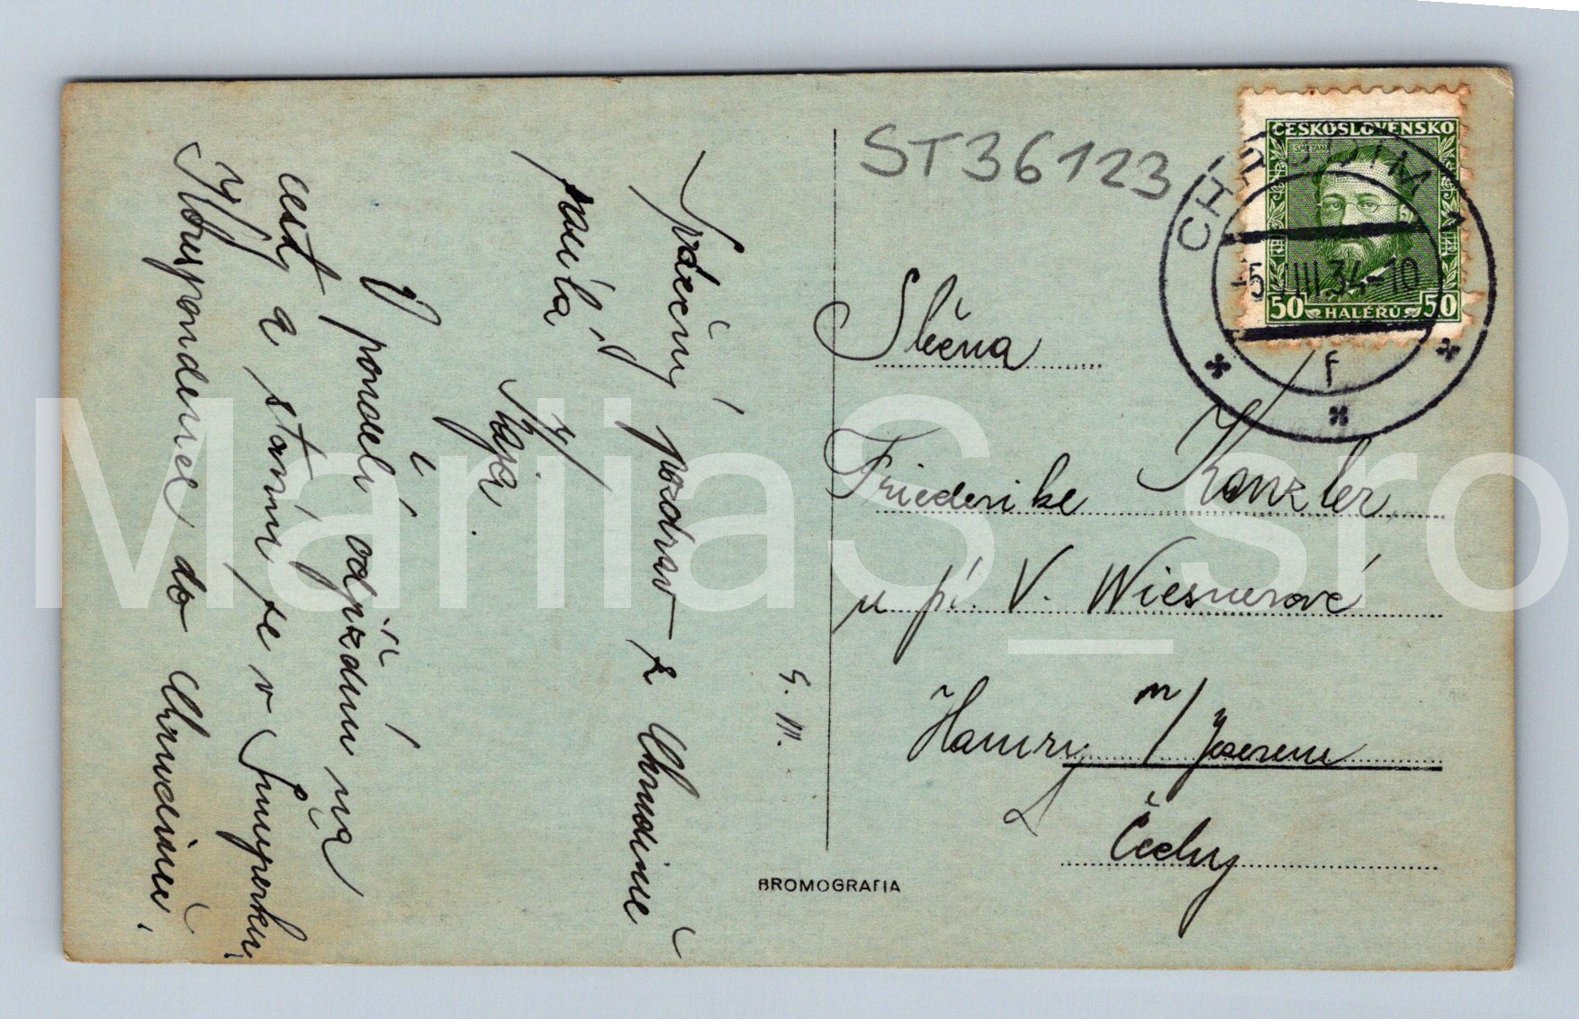 ST36123
ČESKOSLOVENSKO
SMETANA
50 HALÉŘŮ 50
CHRUDIM 1
-5.VIII.34-10
F
Slečna
Friederike Kanzler,
u pí. V. Wiesnerové
Hamry n/Jezerem
Čechy
5. VIII.
Srdečný pozdrav z Chrudimě
posílá
Kája.
V pondělí odjíždím na
cesty a stavím se v Šumperku,
Korespondence do Chrudimi.
BROMOGRAFIA
MariiaS_sro